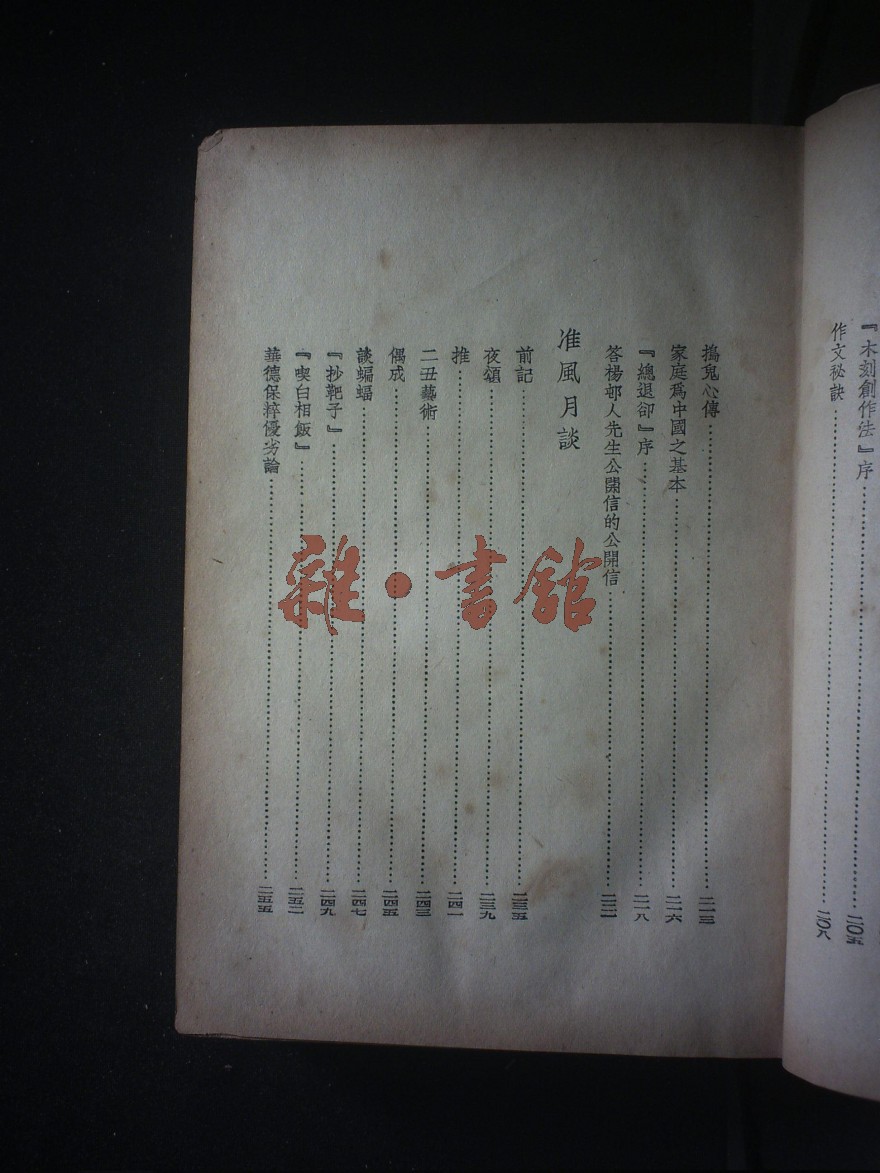 『木刻創作法』序……二〇五
作文秘訣……二〇八
搗鬼心傳……二一三
家庭爲中國之基本……二一六
『總退却』序……二一八
答楊邨人先生公開信的公開信……二二一
准風月談
前記……二三五
夜頌……二三九
推……二四一
二丑藝術……二四三
偶成……二四五
談蝙蝠……二四七
『抄靶子』……二四九
『喫白相飯』……二五二
華德保粹優劣論……二五五
雜·書館